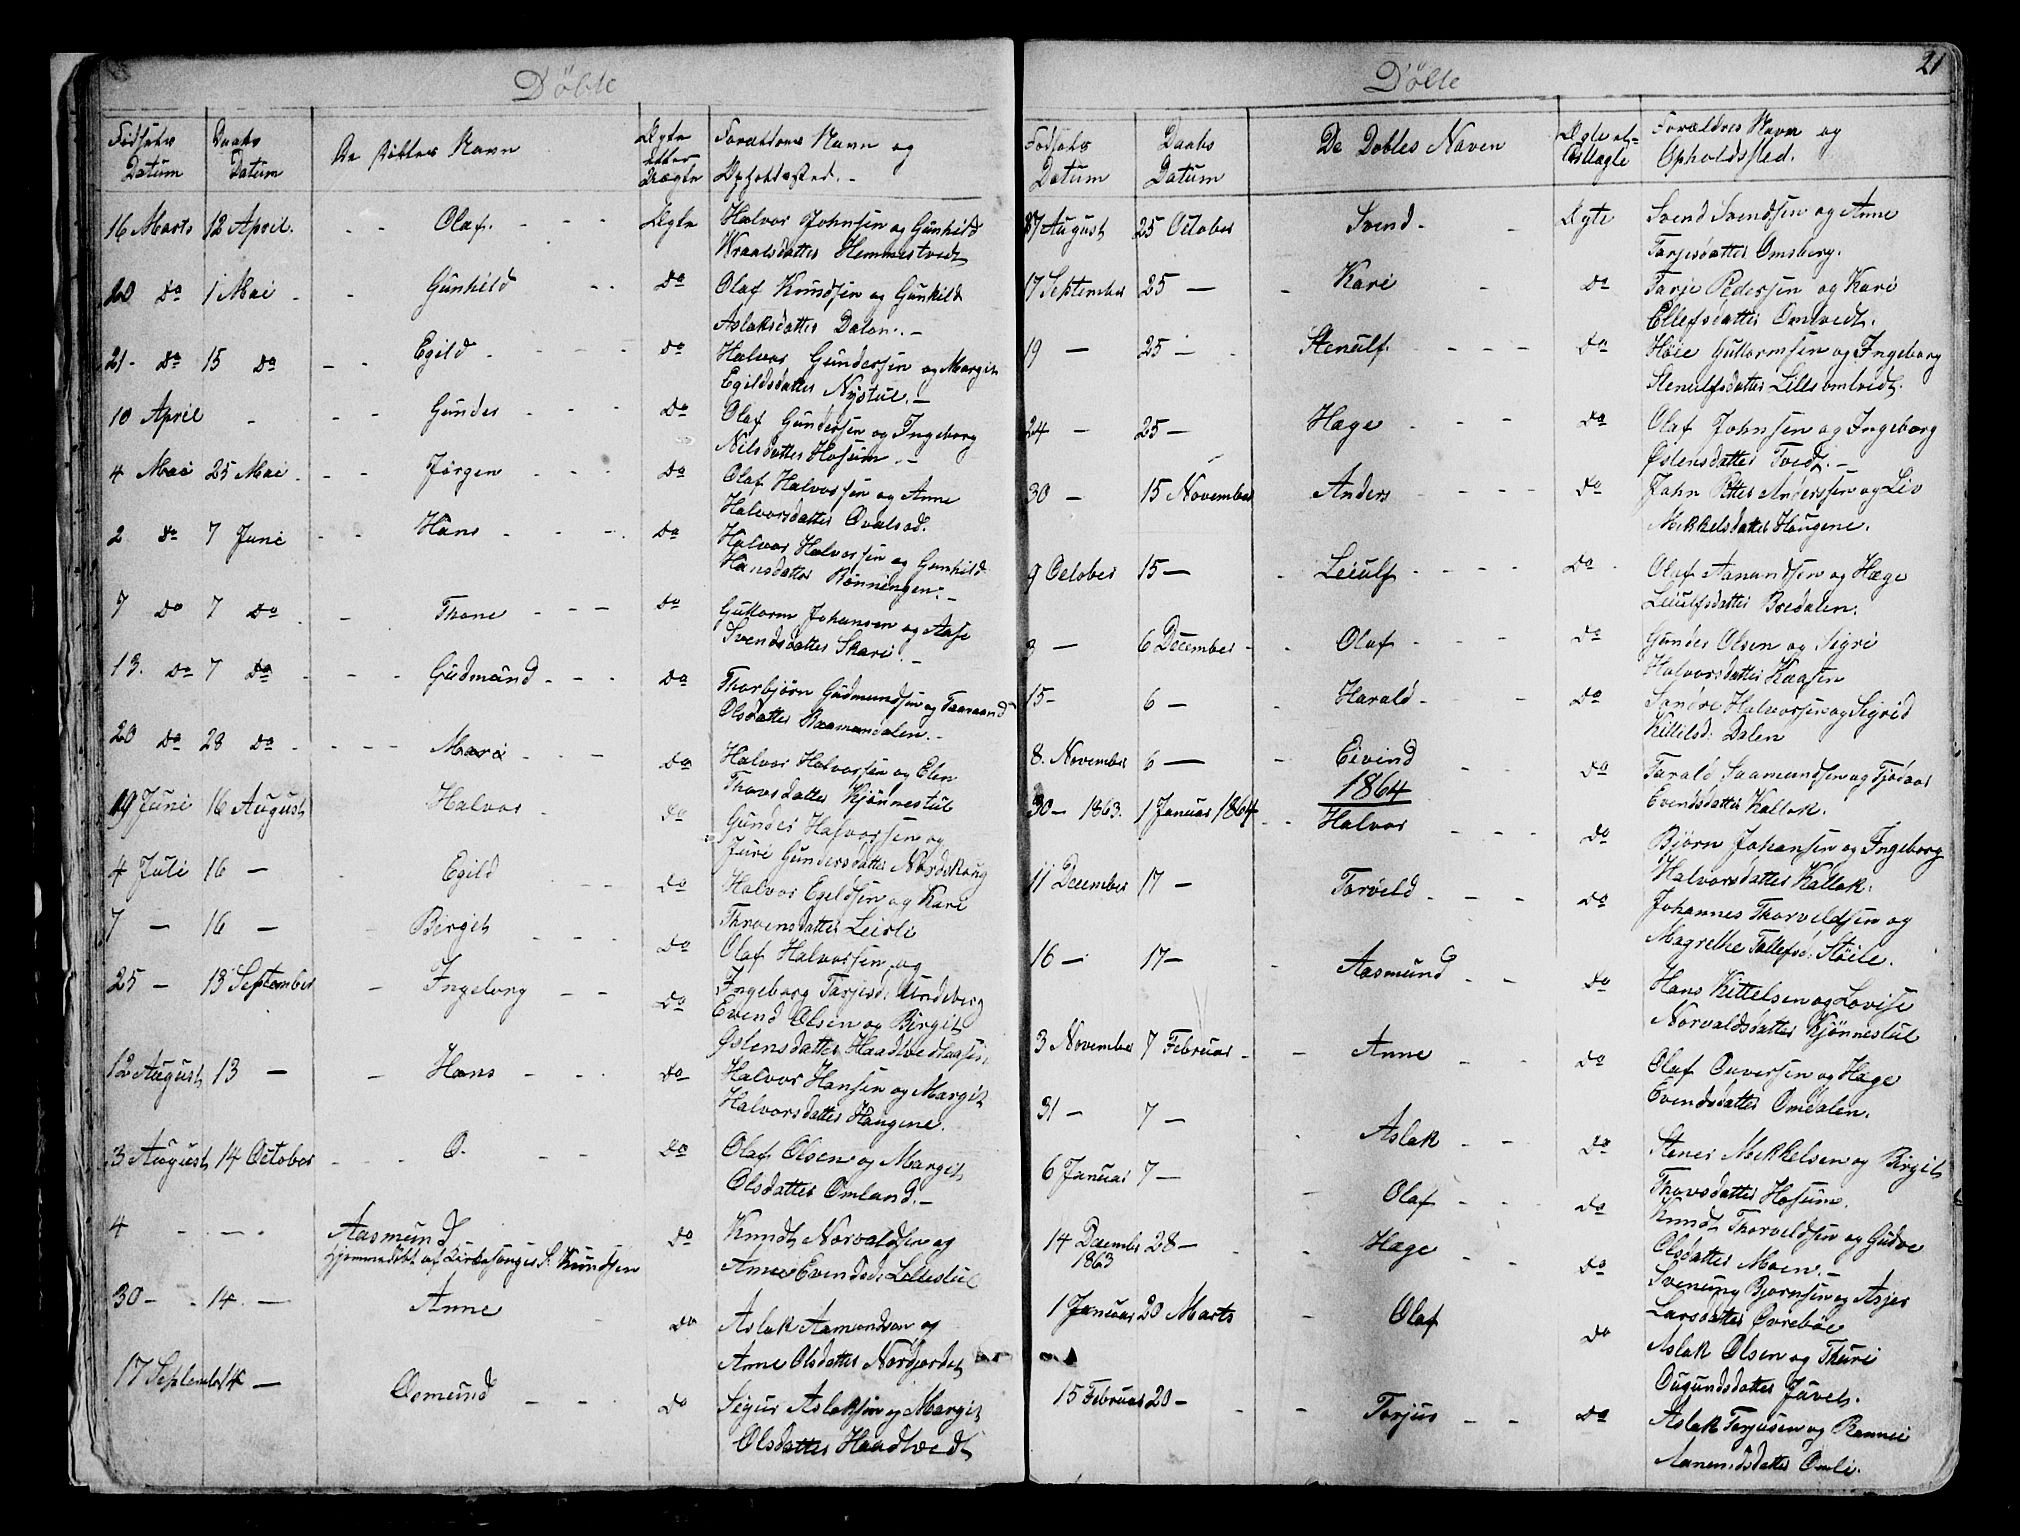 Döbte
Födsels Daabs De Döbtes Navn Ægte Forældres Navn og
Datum Datum eller Opholdssted.
Uægte
16 Marts 12 April. Olaf. Ægte Halvor Johnsen og Gunhild
Wraalsdatter Hemmestvedt
20 Do 1 Mai Gunhild Do Olaf Knudsen og Gunhild
Aslaksdatter Dalen.
21 Do 15 Do Egild Do Halvor Gundersen og Margit
Egildsdatter Nystul.
10 April Gunder Do Olaf Gundersen og Ingeborg
Nilsdatter Hosum.
4 Mai 25 Mai Jörgen Do Olaf Halvorsen og Anne
Halvorsdatter
2 Do 7 Juni Hans Do Halvor Halvorsen og Gunhild
Hansdatter Rönningen.
7 Do 7 Do Thone Do Guttorm Johansen og Aase
Svendsdatter Skare.
13. Do 7 Do Gudmund Do Thorbjörn Gudmundsen og Taaraand
Olsdatter
20 Do 28 Do Mari Do Halvor Halvorsen og Elen
Thovsdatter Kjönnestul
19 Juni 16 August Halvor Do Gunder Halvorsen og
Juri Gundersdatter Nordskoug
4 Juli 16 — Egild Do Halvor Egildsen og Kari
Throensdatter Leirli
7 — 16 — Bergit Do Olaf Halvorsen og
Ingeborg Tarjesd: Lindeberg
25 — 13 September Ingeborg Do Evend Olsen og Birgit
Östensdatter
12 August 13 — Hans Do Halvor Hansen og Margit
Halvorsdatter Haugene.
3 August 14 October O. Do Olaf Olsen og Margit
Olsdatter Omland.
4 Aasmund Do Knudt Norvaldsen og
hjemmedöbt af Kirkesanger S. Knudsen Anne Evendsd: Lillestul
30 — 14 — Anne Do Aslak Aamundsen og
Anne Olsdatter Nordjordet
17 September 14 — Osmund Do Sigur Aslaksen og Margit
Olsdatter Haadtvedt
21
Döbte
Födsels Daabs De Döbtes Naven Ægte el- Forældres Navn og
Datum Datum Uægte Opholdssted.
27 August 25 October Svend Ægte Svend Svendsen og Anne
Tarjesdatter Omsberg.
17 September 25 — Kari Do Tarje Pedersen og Kari
Ellefsdatter Omtvedt.
19 — 25 — Stenulf Do Höie Guttormsen og Ingeborg
Stenulfsdatter Lilleomtvedt.
24 — 25 — Hage Do Olaf Johnsen og Ingeborg
Östensdatter Tvedt.
30 — 15 November Anders Do John Petter Anderssen og Liv
Mekkelsdatter Haugene.
9 October 15 — Leiulf Do Olaf Aanundsen og Hæge
Leiulfsdatter Bredalen.
3 — 6 December Olaf Do Gunder Olsen og Sigri
Halvorsdatter Kaasen
15 — 6 — Harald Do Sondre Halvorsen og Sigrid
Kittilsd: Dalen
8. November 6 — Eivind Do Tarald Saamundsen og Tjodvor
Evendsdatter Kallak.
1864
30 — 1863. 1 Januar 1864 Halvor Do Björn Johansen og Ingeborg
Halvorsdatter Kallak.
11 December 17 — Torveld Do Johannes Thorveldsen og
Magrethe Tollefsd: Stöile.
16 — 17 — Aasmund Do Hans Kittelsen og Lovise
Norvaldsdatter Kjönnestul
3 November 7 Februar Anne Do Olaf Ouversen og Hæge
Evendsdatter Omdalen.
31 — 7 — Aslak Do Stener Mekkelsen og Birgit
Thovsdatter Hosum.
6 Januar 7 — Olaf Do Knudt Thorveldsen og Gudve
Olsdatter Moen.
14 December 28 — Hæge Do Svenung Bjornsen og Asjer
1863 Larsdatter Övreböe
1 Januar 20 Marts Olaf Do Aslak Olsen og Thuri
Ougundsdatter Juvel.
15 Februar 20 — Torjus Do Aslak Torjusen og Rannei
Aanundsdatter Omli.